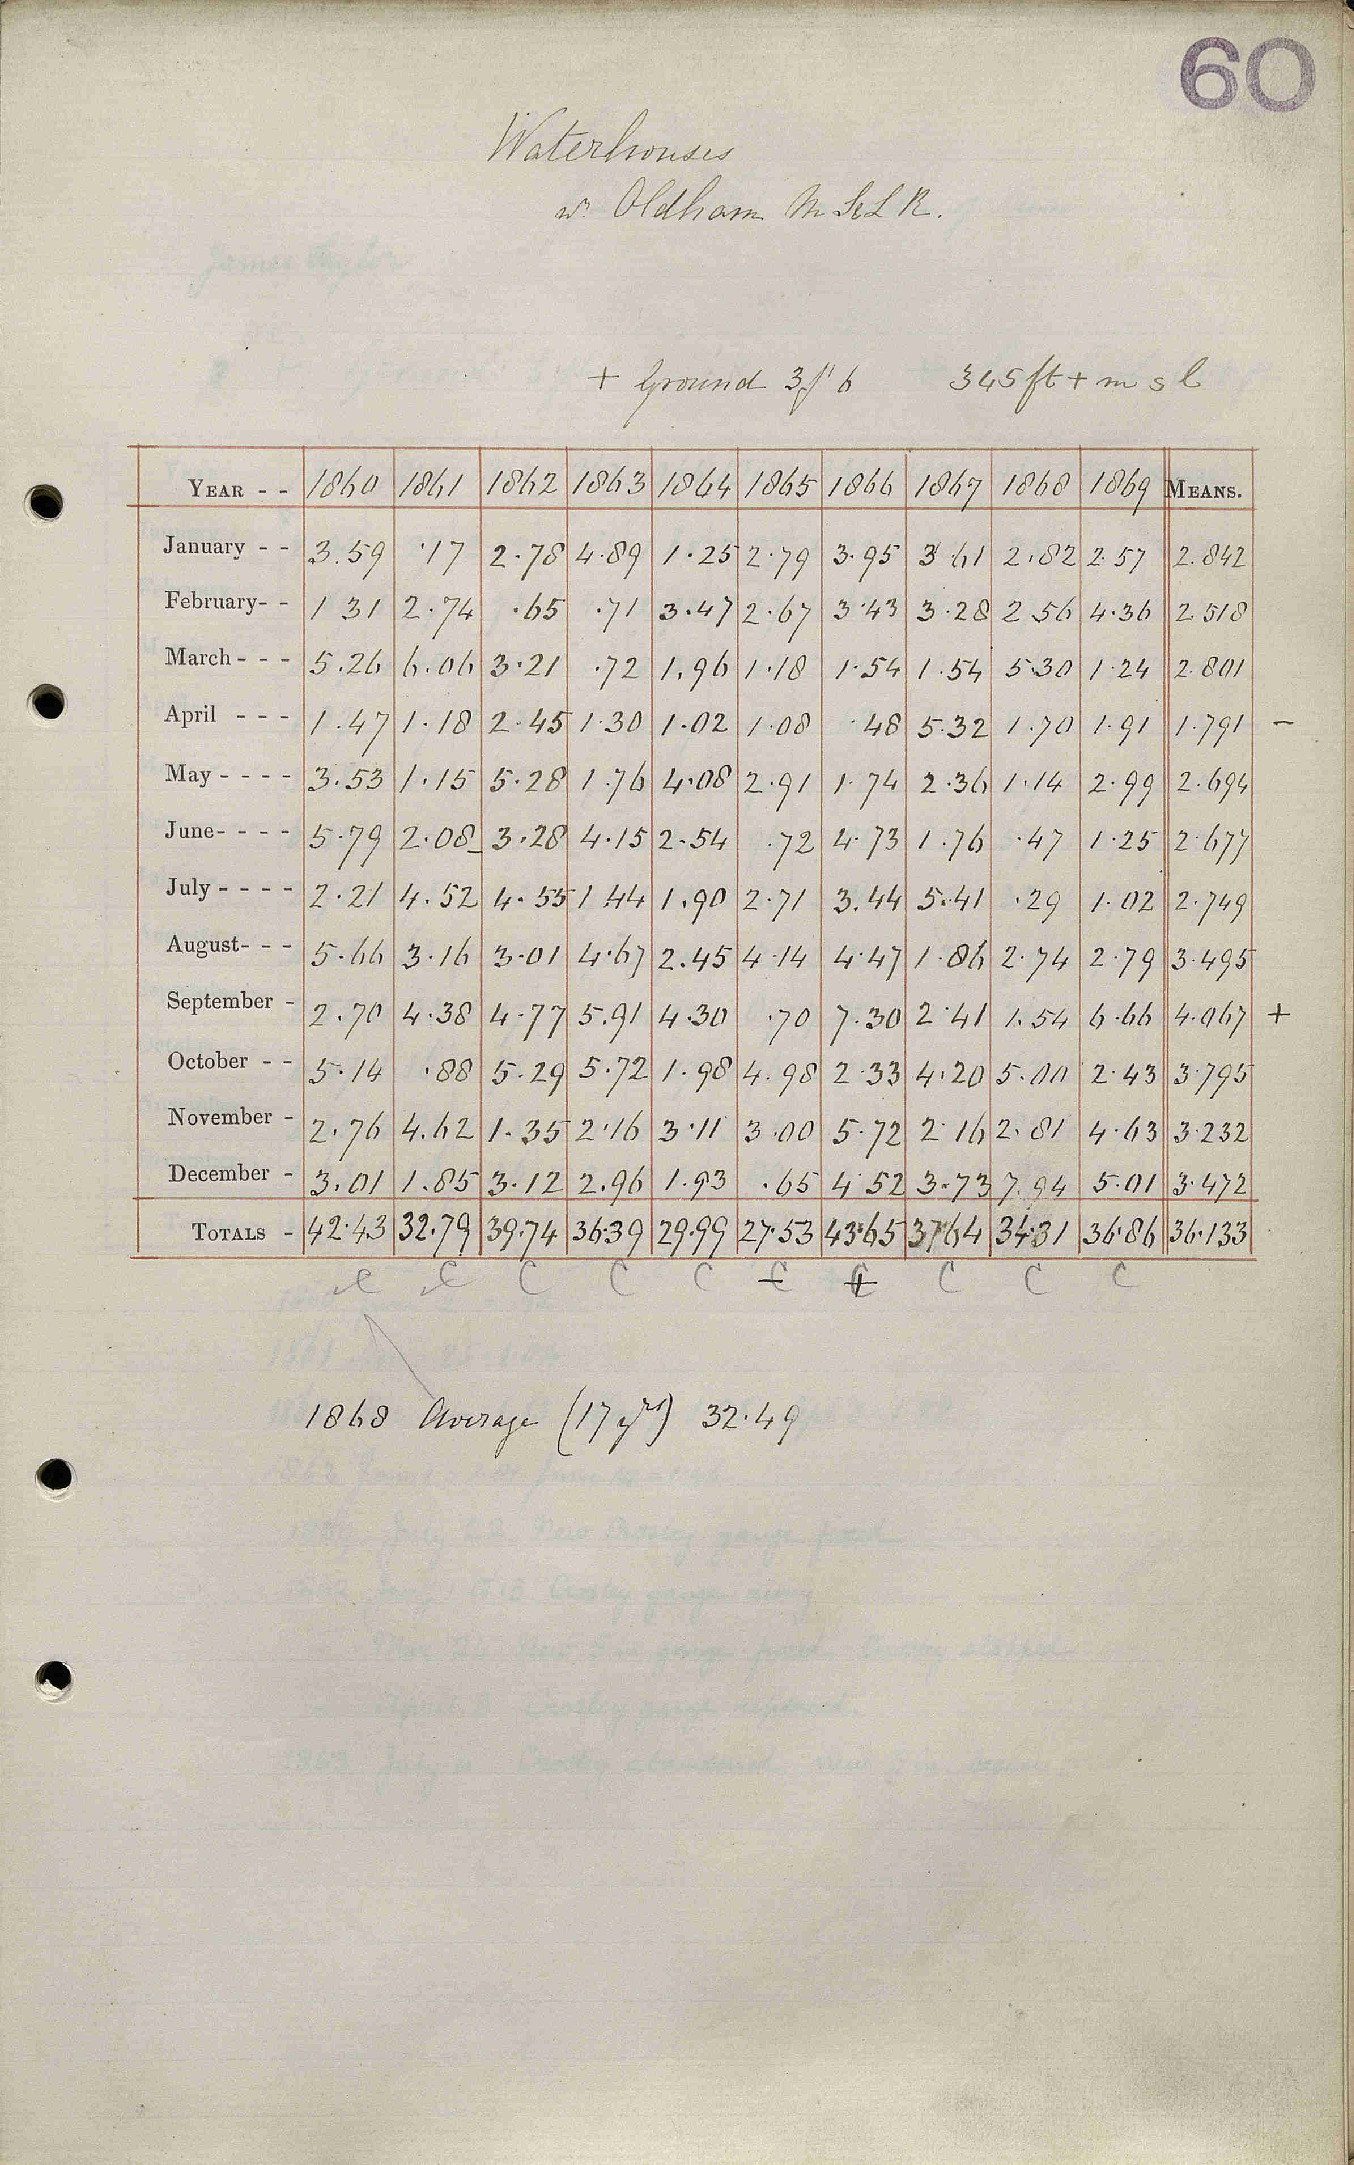 60
Waterhouses
nr Oldham M S & L R.
+ Ground 3ft 6 345 ft + m s l
YEAR - - 1860 1861 1862 1863 1864 1865 1866 1867 1868 1869 MEANS.
January - - 3.59 .17 2.78 4.89 1.25 2.79 3.95 3 61 2.82 2.57 2.842
February- - 1 31 2.74 .65 .71 3.47 2.67 3.43 3.28 2 56 4.36 2 518
March - - - 5.26 6.06 3.21 .72 1.96 1.18 1.54 1.54 5.30 1.24 2.801
April - - - 1.47 1.18 2.45 1.30 1.02 1.08 .48 5.32 1.70 1.91 1.791 -
May - - - - 3.53 1.15 5.28 1.76 4.08 2.91 1.74 2.36 1.14 2.99 2.694
June- - - - 5.79 2.08 3.28 4.15 2.54 .72 4.73 1.76 .47 1.25 2.677
July - - - - 2.21 4.52 4.55 1 44 1.90 2.71 3.44 5.41 .29 1.02 2.749
August- - - 5.66 3.16 3.01 4.67 2.45 4.14 4.47 1.86 2.74 2.79 3.495
September - 2.70 4.38 4.77 5.91 4.30 .70 7.30 2.41 1.54 6.66 4.067 +
October - - 5.14 .88 5.29 5.72 1.98 4.98 2.33 4.20 5.00 2.43 3.795
November - 2.76 4.62 1.35 2.16 3.11 3.00 5.72 2.16 2.81 4.63 3.232
December - 3.01 1.85 3.12 2.96 1.93 .65 4.52 3.73 7.94 5.01 3.472
TOTALS - 42.43 32.79 39.74 36.39 29.99 27.53 43.65 37.64 34.31 36.86 36.133
C C C C C C C C C C
1868 Average (17 yrs) 32.49